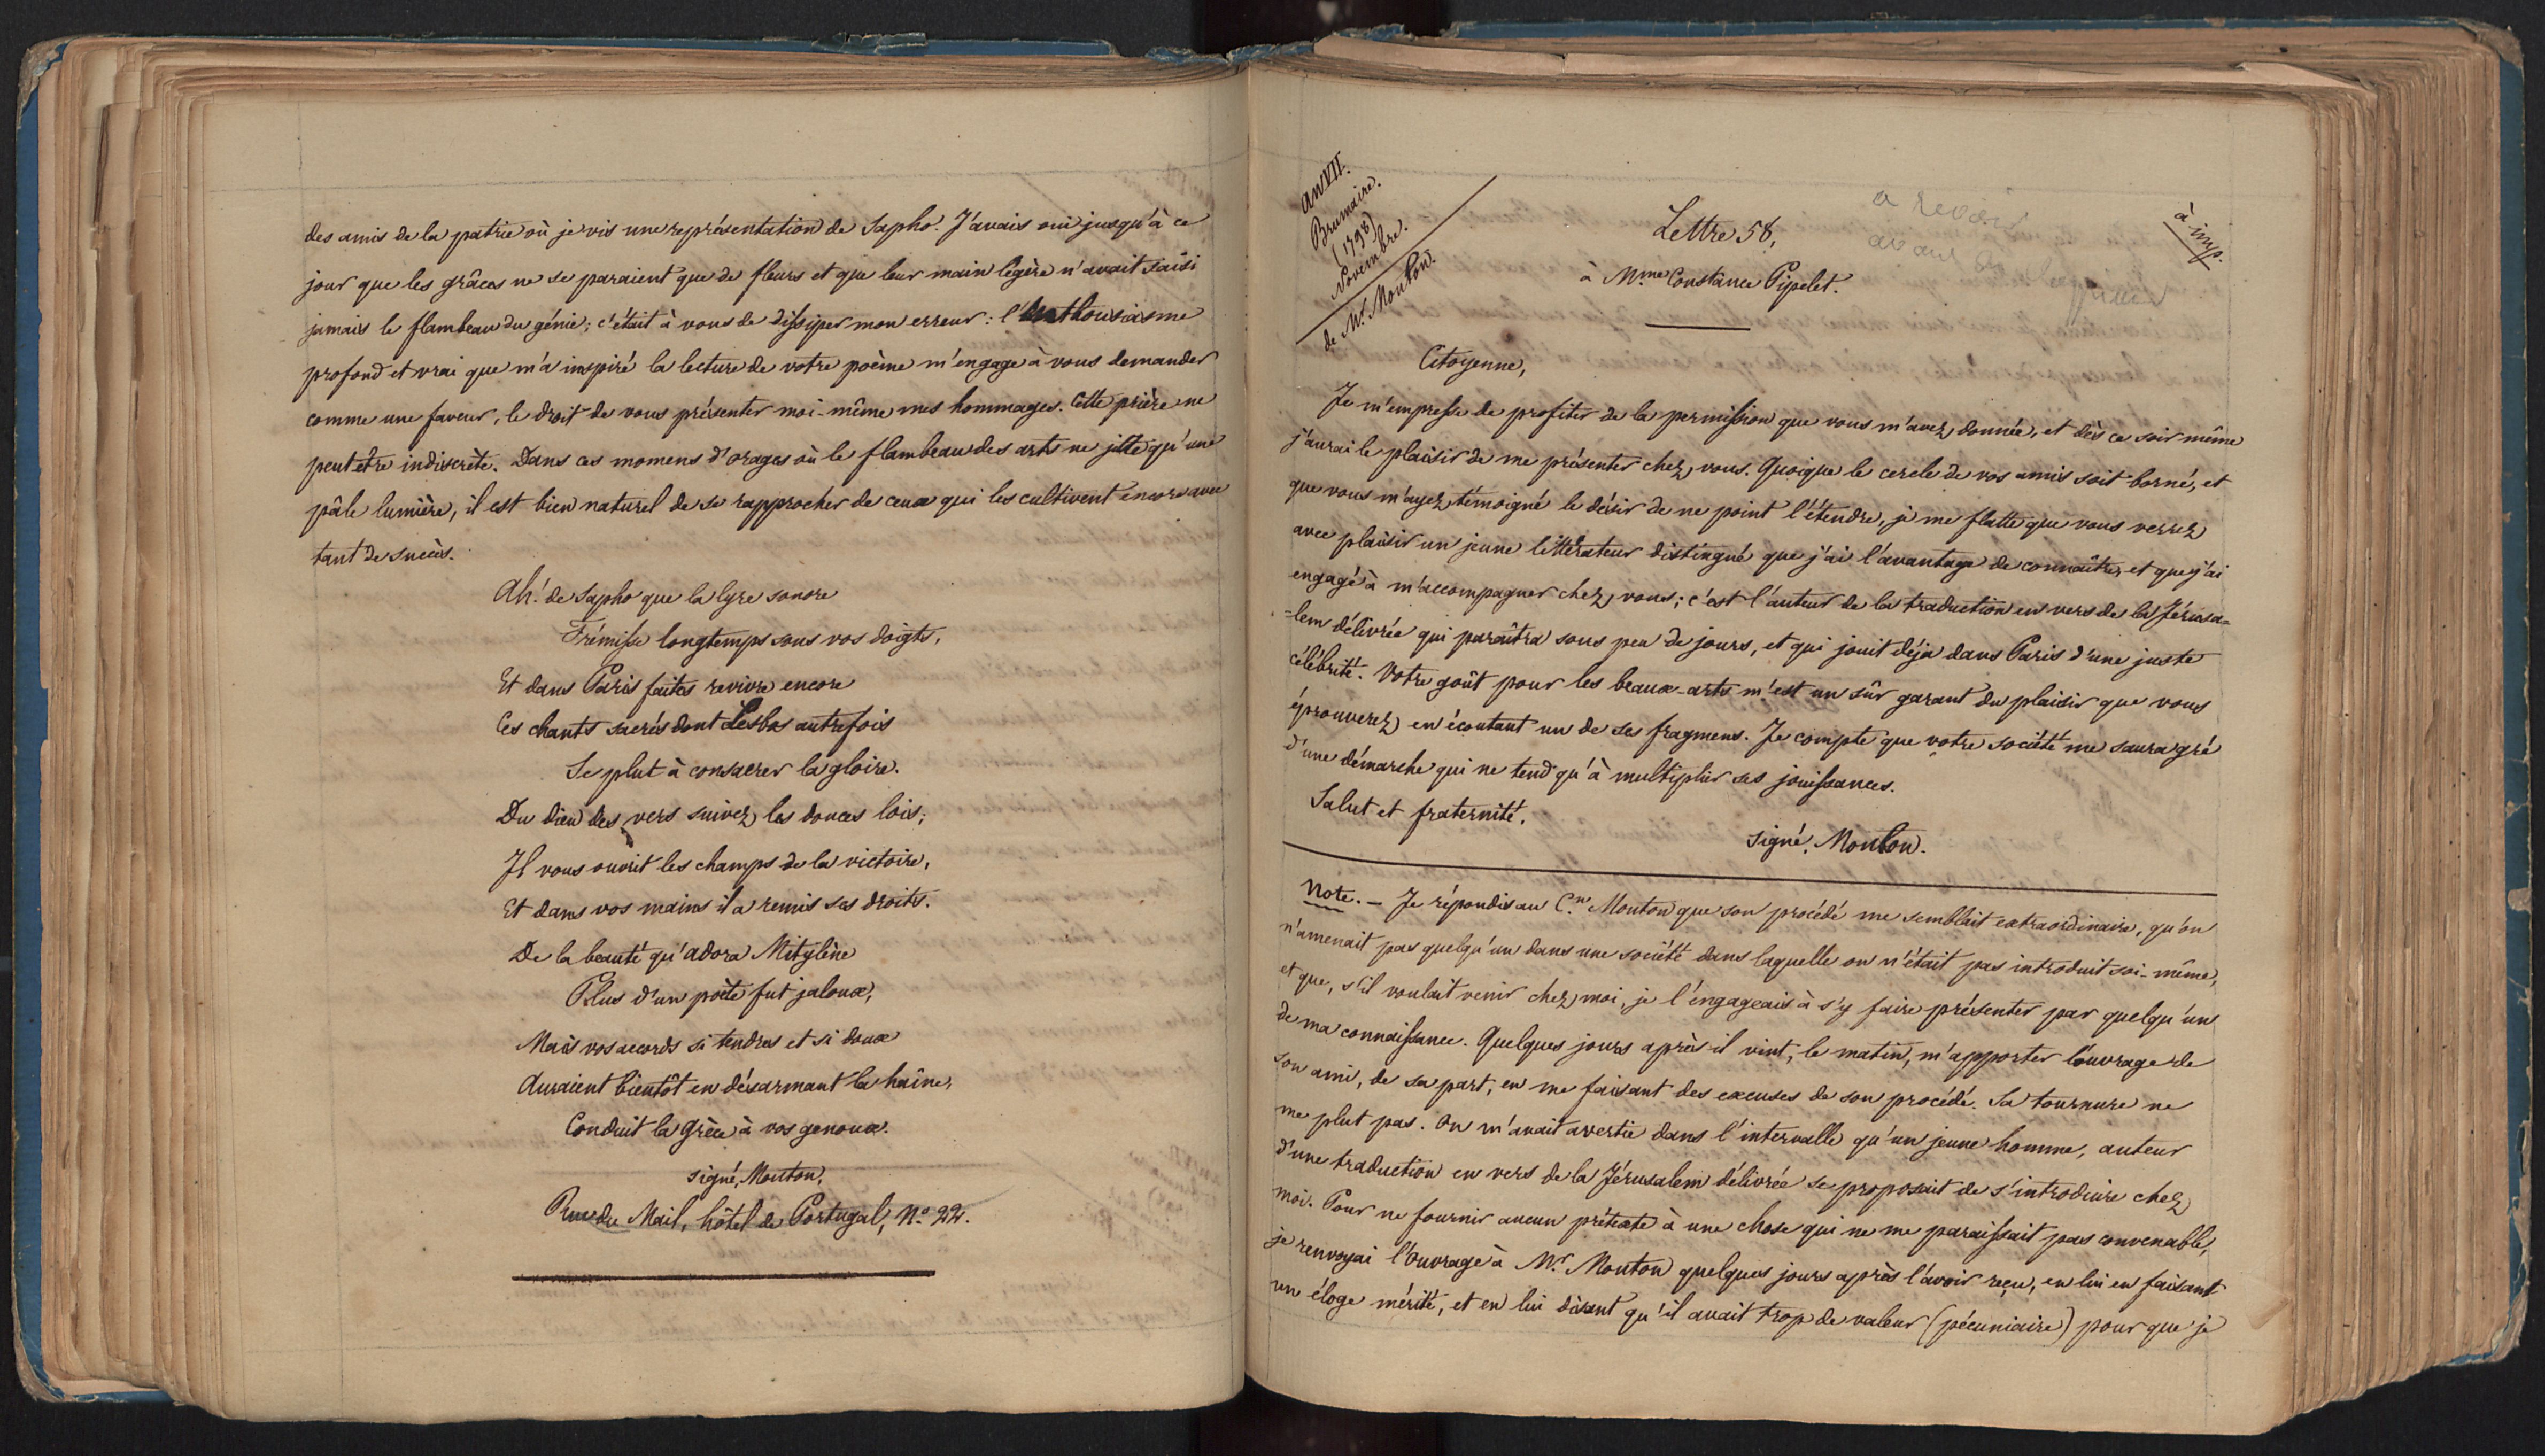 des amis de la patrie où je vis une représentation de Sapho. J'avais oui jusqu'à ce
jour que les grâces ne se paraient que de fleurs et que leur main légère n'avait saisi
jamais le flambeau du génie; c'était à vous de dissiper mon erreur: l'enthousiasme
profond et vrai que m'a inspiré la lecture de votre poème m'engage à vous demander
comme une faveur, le droit de vous présenter moi-même mes hommages. Cette prière ne
peut être indiscrète. Dans ces momens d'orages où le flambeau des arts ne jette qu'une
pâle lumière, il est bien naturel de se rapprocher de ceux qui les cultivent encore avec
tant de succès.
Ah! de Sapho que la lyre sonore
Frémisse longtemps sous vos doigts,
Et dans Paris faites revivre encore
Ces chants sacrés dont Lesbos autrefois
Se plut à consacrer la gloire.
Du dieu des vers suivez les douces lois;
Il vous ouvrit les champs de la victoire,
Et dans vos mains il a remis ses droits.
De la beauté qu'adora Mitylène
Plus d'un poète fut jaloux,
Mais vos accords si tendres et si doux
Auraient bientôt en désarmant la haîne,
Conduit la Grèce à vos genoux.
signé, Mouton,
Rue du Mail, hôtel de Portugal, N.º 22.
an VII.
Brumaire.
(1798)
Novembre.
de M.r Mouton.
Lettre 58,
à M.me Constance Pipelet.
a revoir
à imp.
Citoyenne,
Je m'empresse de profiter de la permission que vous m'avez donnée, et dès ce soir même
j'aurai le plaisir de me présenter chez vous. Quoique le cercle de vos amis soit borné, et
que vous m'ayez témoigné le désir de ne point l'étendre, je me flatte que vous verrez
avec plaisir un jeune littérateur distingué que j'ai l'avantage de connaître, et que j'ai
engagé à m'accompagner chez vous; c'est l'auteur de la traduction en vers de la Jérusa=
=lem délivrée qui paraîtra sous peu de jours, et qui jouit déjà dans Paris d'une juste
célébrité. Votre goût pour les beaux-arts m'est un sûr garant du plaisir que vous
éprouverez en écoutant un de ses fragmens. Je compte que votre société me saura gré
d'une démarche qui ne tend qu'à multiplier ses jouissances.
Salut et fraternité,
signé, Mouton.
Note. — Je répondis au C.en Mouton que son procédé me semblait extraordinaire, qu'on
n'amenait pas quelqu'un dans une société dans laquelle on n'était pas introduit soi-même,
et que, s'il voulait venir chez moi, je l'engageais à s'y faire présenter par quelqu'un
de ma connaissance. Quelques jours après il vint, le matin, m'apporter l'ouvrage de
son ami, de sa part, en me faisant des excuses de son procédé. Sa tournure ne
me plut pas. On m'avait avertie dans l'intervalle qu'un jeune homme, auteur
d'une traduction en vers de la Jérusalem délivrée se proposait de s'introduire chez
moi. Pour ne fournir aucun prétexte à une chose qui ne me paraissait pas convenable,
je renvoyai l'ouvrage à M.r Mouton quelques jours après l'avoir reçu, en lui en faisant
un éloge mérité, et en lui disant qu'il avait trop de valeur (pécuniaire) pour que je